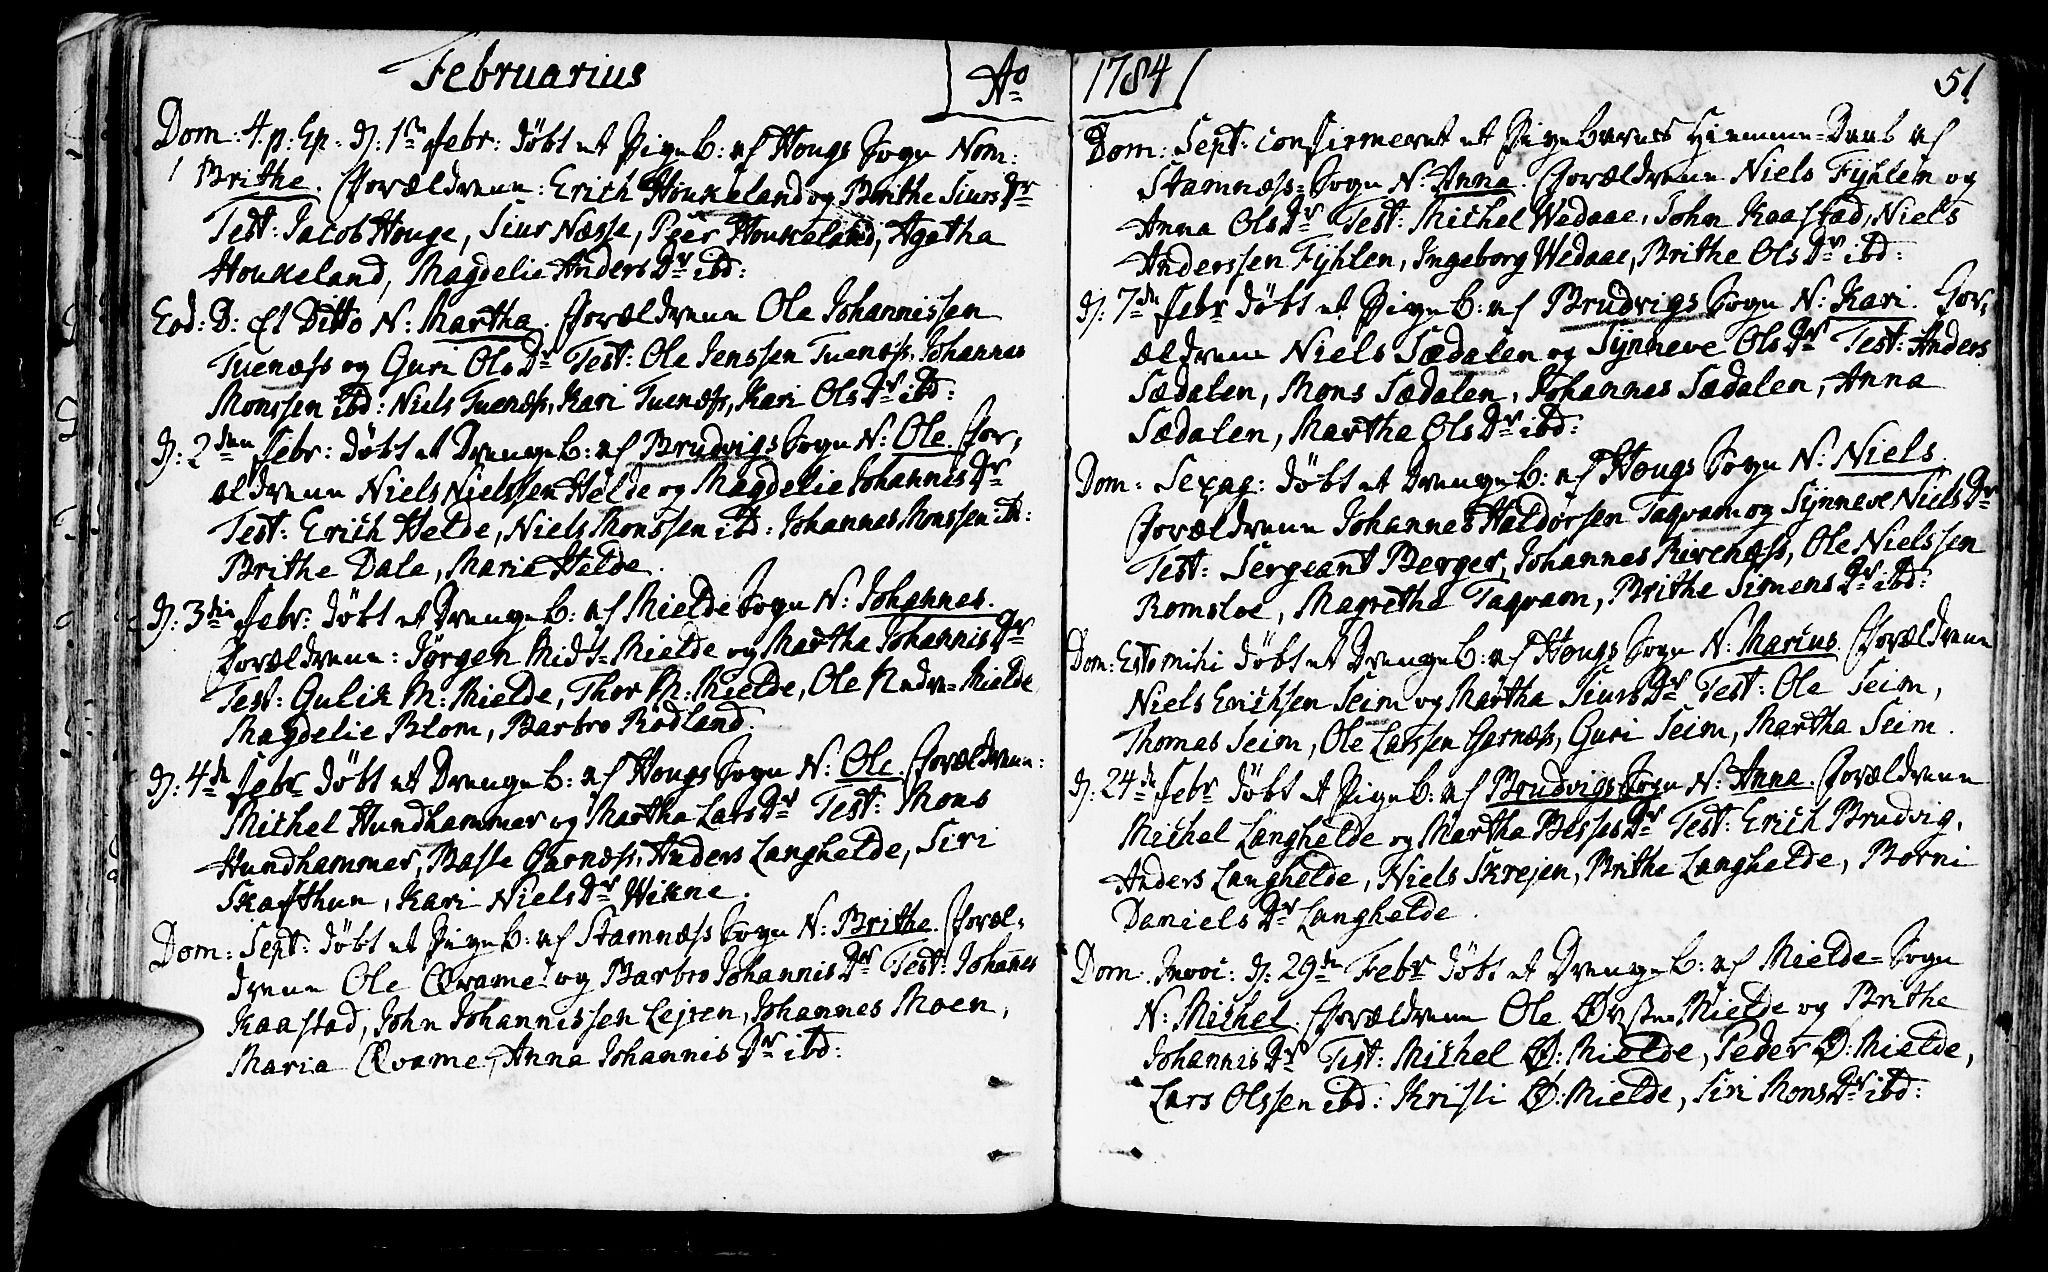 Februarius
Ao
Dom: 4. p: Ep. d: 1ste febr: döbt et Pigeb: af Hougs Sogn Nom:
Brithe. Forældrene: Erich Houkeland og Brithe Siurs Dr
Test: Jacob Houge, Siur Næsse, Peer Houkeland, Agatha
Houkeland, Magdelie Anders Dr ibd:
Eod: D: et Ditto N: Martha. Forældrene Ole Johannissen
Tuenæss og Guri Ols Dr Test: Ole Jenssen Tuenæss, Johannes
Monssen ibd: Niels Tuenæss, Kari Tuenæss, Kari Ols Dr ibd:
d: 2den febr: döbt et Drengeb: af Brudvigs Sogn N: Ole. For,
ældrene Niels Nielssen Helde og Magdelie Johannis Dr
Test: Erich Helde, Niels Monssen ibd: Johannes Monssen ib:
Brithe Dale, Maria Helde.
d: 3die febr: döbt et Drengeb: af Mielde Sogn N: Johannes.
Forældrene: Jörgen Midt-Mielde og Martha Johannis Dr
Test: Gulik M: Mielde, Thor M: Mielde, Ole Nedre-Mielde
Magdelie Blom, Barbro Rödland.
d: 4de febr döbt et Drengeb: af Hougs Sogn N: Ole. Forældrene:
Michel Hundhammer og Martha Lars Dr Test: Mons
Hundhammer, Basse Garnæss, Anders Langhelde, Siri
Skafthun, Kari Niels Dr Wikne.
Dom: Sept: döbt et Pigeb: af Stamnæss Sogn N: Brithe. Foræl,
drene Ole Qvame og Barbro Johannis Dr Test: Johanes
Kaastad, John Johannissen Lejren, Johannes Moen,
Maria Qvame, Anna Johannis Dr ibd:
1784
51
Dom: Sept: confirmeret et Pigebarns Hiemme-Daab af
Stamnæss-Sogn N: Anna. Forældrene Niels Fÿhlen og
Anna Ols Dr Test: Michel Wedaae, John Kaastad, Niels
Anderssen Fÿhlen, Ingeborg Wedaae, Brithe Ols Dr ibd:
d: 7de febr döbt et Pigeb: af Brudvigs Sogn N: Kari. For,
ældrene Niels Sædalen og Sÿnneve Ols Dr Test: Anders
Sædalen, Mons Sædalen, Johannes Sædalen, Anna
Sædalen, Martha Ols Dr ibd:
Dom: Sexag: döbt et Drengeb: af Hougs Sogn N: Niels.
Forældrene Johannes Haldorsen Taqvam og Sÿnneve Niels Dr
Test: Sergeant Berger, Johannes Rivenæss, Ole Nielssen
Romsloe, Magrethe Taqvam, Brithe Simens Dr ibd:
Dom: Estomihi döbt et Drengeb: af Hougs Sogn N: Marius. Forældrene
Niels Erichsen Seim og Martha Siurs Dr Test: Ole Seim,
Thomas Seim, Ole Larssen Garnæss, Guri Seim, Martha Seim.
d: 24de febr döbt et Pigeb: af Brudvigs Sogn N: Anna. Forældrene
Michel Langhelde og Martha Besses Dr Test: Erich Brudvig,
Anders Langhelde, Niels Skrejen, Brithe Langhelde, Borni
Daniels Dr Langhelde.
Dom. Invoc: d: 29de Febr döbt et Drengeb: af Mielde-Sogn
N: Michel. Forældrene Ole Øvste-Mielde og Brithe
Johannis Dr Test: Michel Ø: Mielde, Peder Ø: Mielde,
Lars Olssen ibd: Kristi Ø: Mielde, Siri Mons Dr ibd: